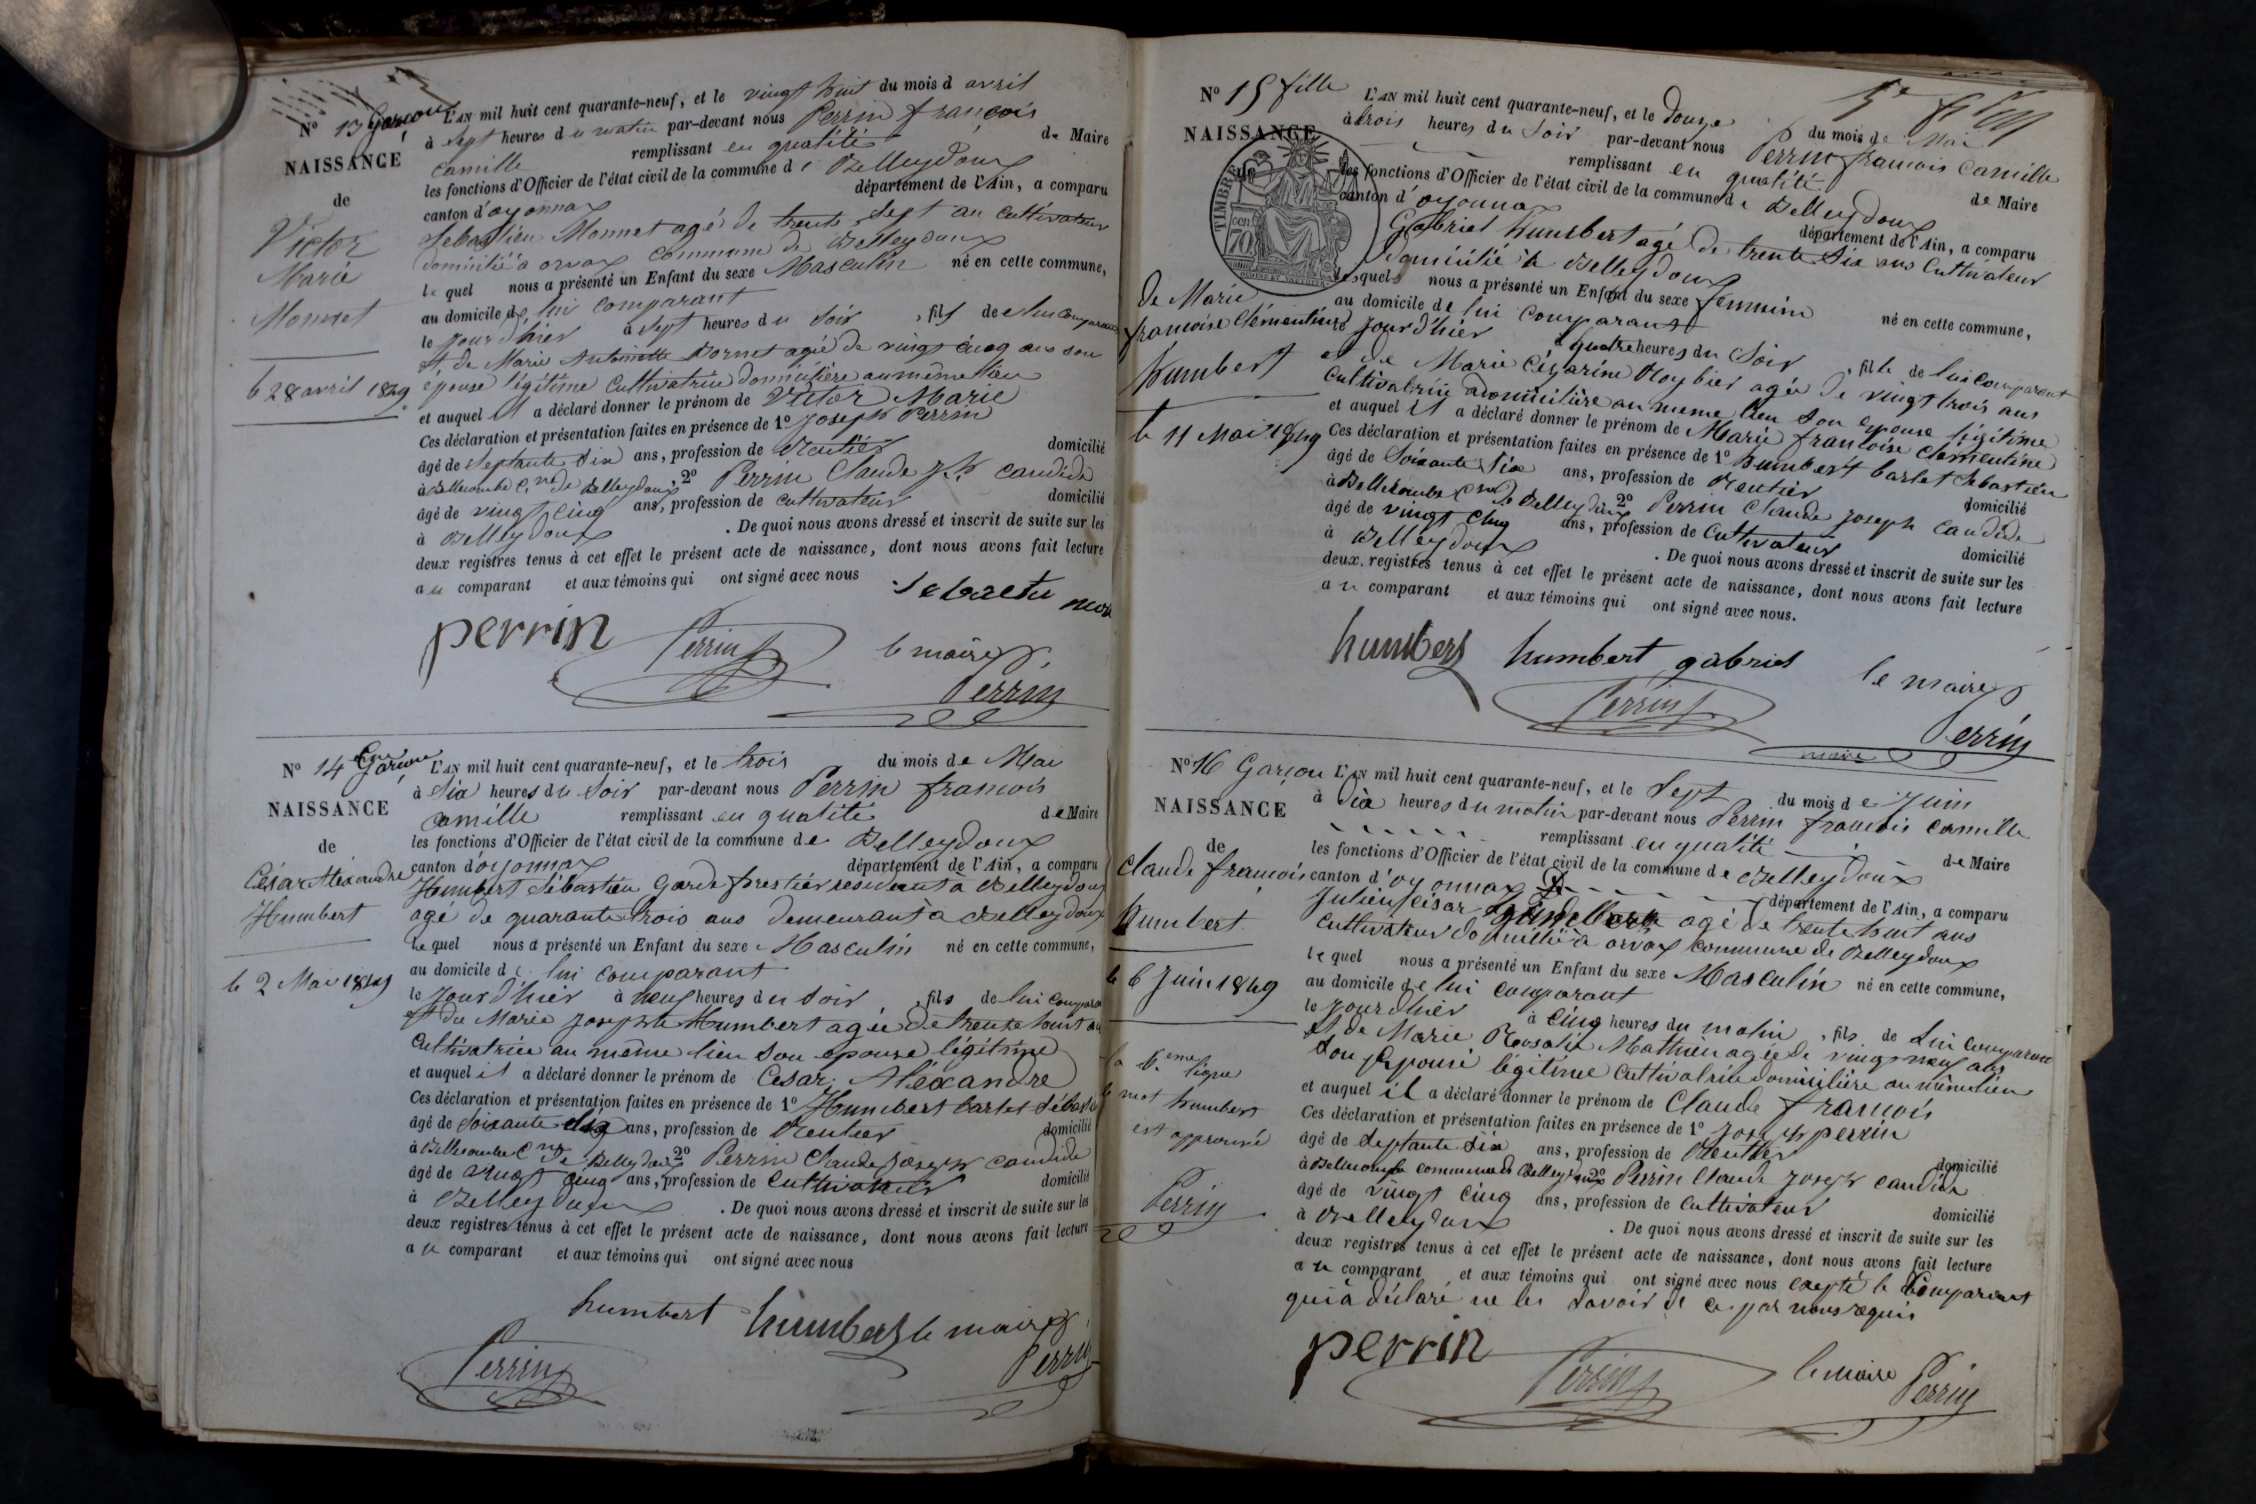 N° 13 Garçon
NAISSANCE
de
Victor
Marie
Monnet
le 28 avril 1849
L'AN mil huit cent quarante-neuf, et le vingt huit du mois d avril
à sept heures du matin par-devant nous Perrin françois
camille remplissant en qualité de Maire
les fonctions d'Officier de l'état civil de la commune de Belleydoux
canton d'oyonnax département de l'Ain, a comparu
Sebastien Monnet agé de trente sept an cultivateur
domicilié à orvax commune de Belleydoux
lequel nous a présenté un Enfant du sexe Masculin né en cette commune,
au domicile de lui comparant
le jour d'hier à sept heures du soir , fils de lui comparant
et de Marie Antoinette Bornet agée de vingt cinq ans son
épouse légitime cultivatrice domicilière au même lieu
et auquel il a déclaré donner le prénom de Victor Marie
Ces déclaration et présentation faites en présence de 1° Joseph Perrin
âgé de septante six ans, profession de Rentier domicilié
à Bellecombe Cne de Belleydoux, 2° Perrin Claude Jh candide
âgé de vingt cinq ans, profession de cultivateur domicilié
à Belleydoux . De quoi nous avons dressé et inscrit de suite sur les
deux registres tenus à cet effet le présent acte de naissance, dont nous avons fait lecture
au comparant et aux témoins qui ont signé avec nous
perrin Perrin le maire
Perrin
N° 14 Garçon
NAISSANCE
de
César Alexandre
Humbert
le 2 Mai 1849
L'AN mil huit cent quarante-neuf, et le trois du mois de Mai
à six heures du soir par-devant nous Perrin francois
camille remplissant en qualité de Maire
les fonctions d'Officier de l'état civil de la commune de Belleydoux
canton d'oyonnax département de l'Ain, a comparu
Humbert Sébastien Garde forestier residant à Belleydoux
agé de quarante trois ans demeurant à Belleydoux
lequel nous a présenté un Enfant du sexe Masculin né en cette commune,
au domicile de lui comparant
le jour d'hier à neuf heures du soir , fils de lui comparant
et de Marie josephte Humbert agée de trente huit an
cultivatrice au même lieu son epouse légitime
et auquel il a déclaré donner le prénom de Cesar Alexandre
Ces déclaration et présentation faites en présence de 1° Humbert Barlet Sébastien
âgé de soixante six ans, profession de Rentier domicilié
à Bellecombe Cne de Belleydoux 2° Perrin Claude Joseph candide
âgé de vingt cinq ans, profession de cultivateur domicilié
à Belleydoux . De quoi nous avons dressé et inscrit de suite sur les
deux registres tenus à cet effet le présent acte de naissance, dont nous avons fait lecture
au comparant et aux témoins qui ont signé avec nous
humbert humbert le maire
Perrin Perrin
N° 15 fille
NAISSANCE
TIMBRE
70
de Marie
francoise Clémentine
Humbert
le 11 Mai 1849
L'AN mil huit cent quarante-neuf, et le Douze du mois de Mai
à trois heures du soir par-devant nous Perrin francois Camille
remplissant en qualité de Maire
les fonctions d'Officier de l'état civil de la commune de Belleydoux
canton d'oyonnax département de l'Ain, a comparu
Gabriel humbert agé de trente six ans cultivateur
domicilié à Belleydoux
lesquel nous a présenté un Enfant du sexe feminin né en cette commune,
au domicile de lui comparant
le jour d'hier à quatre heures du soir , fille de lui comparant
et de Marie Cézarine Roybier agée de vingt trois ans
cultivatrice domicilière au meme lieu son epouse légitime
et auquel il a déclaré donner le prénom de Marie francoise Clementine
Ces déclaration et présentation faites en présence de 1° humbert barlet Sebastien
âgé de Soixante six ans, profession de Rentier domicilié
à Bellecombe Cne de Belleydoux 2° Perrin Claude joseph candide
âgé de vingt cinq ans, profession de cultivateur domicilié
à Belleydoux . De quoi nous avons dressé et inscrit de suite sur les
deux registres tenus à cet effet le présent acte de naissance, dont nous avons fait lecture
au comparant et aux témoins qui ont signé avec nous.
humbert humbert gabriel le maire
Perrin Perrin
maire
N° 16 Garçon
NAISSANCE
de
Claude françois
humbert
le 6 Juin 1849
la 6eme ligne
le mot humbert
est approuvé
Perrin
L'AN mil huit cent quarante-neuf, et le Sept du mois de Juin
à Dix heures du matin par-devant nous Perrin francois Camille
remplissant en qualité de Maire
les fonctions d'Officier de l'état civil de la commune de Belleydoux
canton d'oyonnax département de l'Ain, a comparu
Julien César agé de trente huit ans
cultivateur domicilié à orvax commune de Belleydoux
lequel nous a présenté un Enfant du sexe Masculin né en cette commune,
au domicile de lui comparant
le jour d'hier à cinq heures du matin , fils de lui comparant
et de Marie Rosalie Mathieu agée de vingt neuf ans
son epouse légitime cultivatrice domicilière au même lieu
et auquel il a déclaré donner le prénom de Claude francois
Ces déclaration et présentation faites en présence de 1° Joseph perrin
âgé de septante six ans, profession de Rentier domicilié
à Bellecombe commune de Belleydoux 2° Perrin Claude Joseph candide
âgé de vingt cinq ans, profession de cultivateur domicilié
à Belleydoux . De quoi nous avons dressé et inscrit de suite sur les
deux registres tenus à cet effet le présent acte de naissance, dont nous avons fait lecture
au comparant et aux témoins qui ont signé avec nous excepté le Comparant
qui à déclaré ne les savoir de ce par nous requis
perrin Perrin le maire Perrin